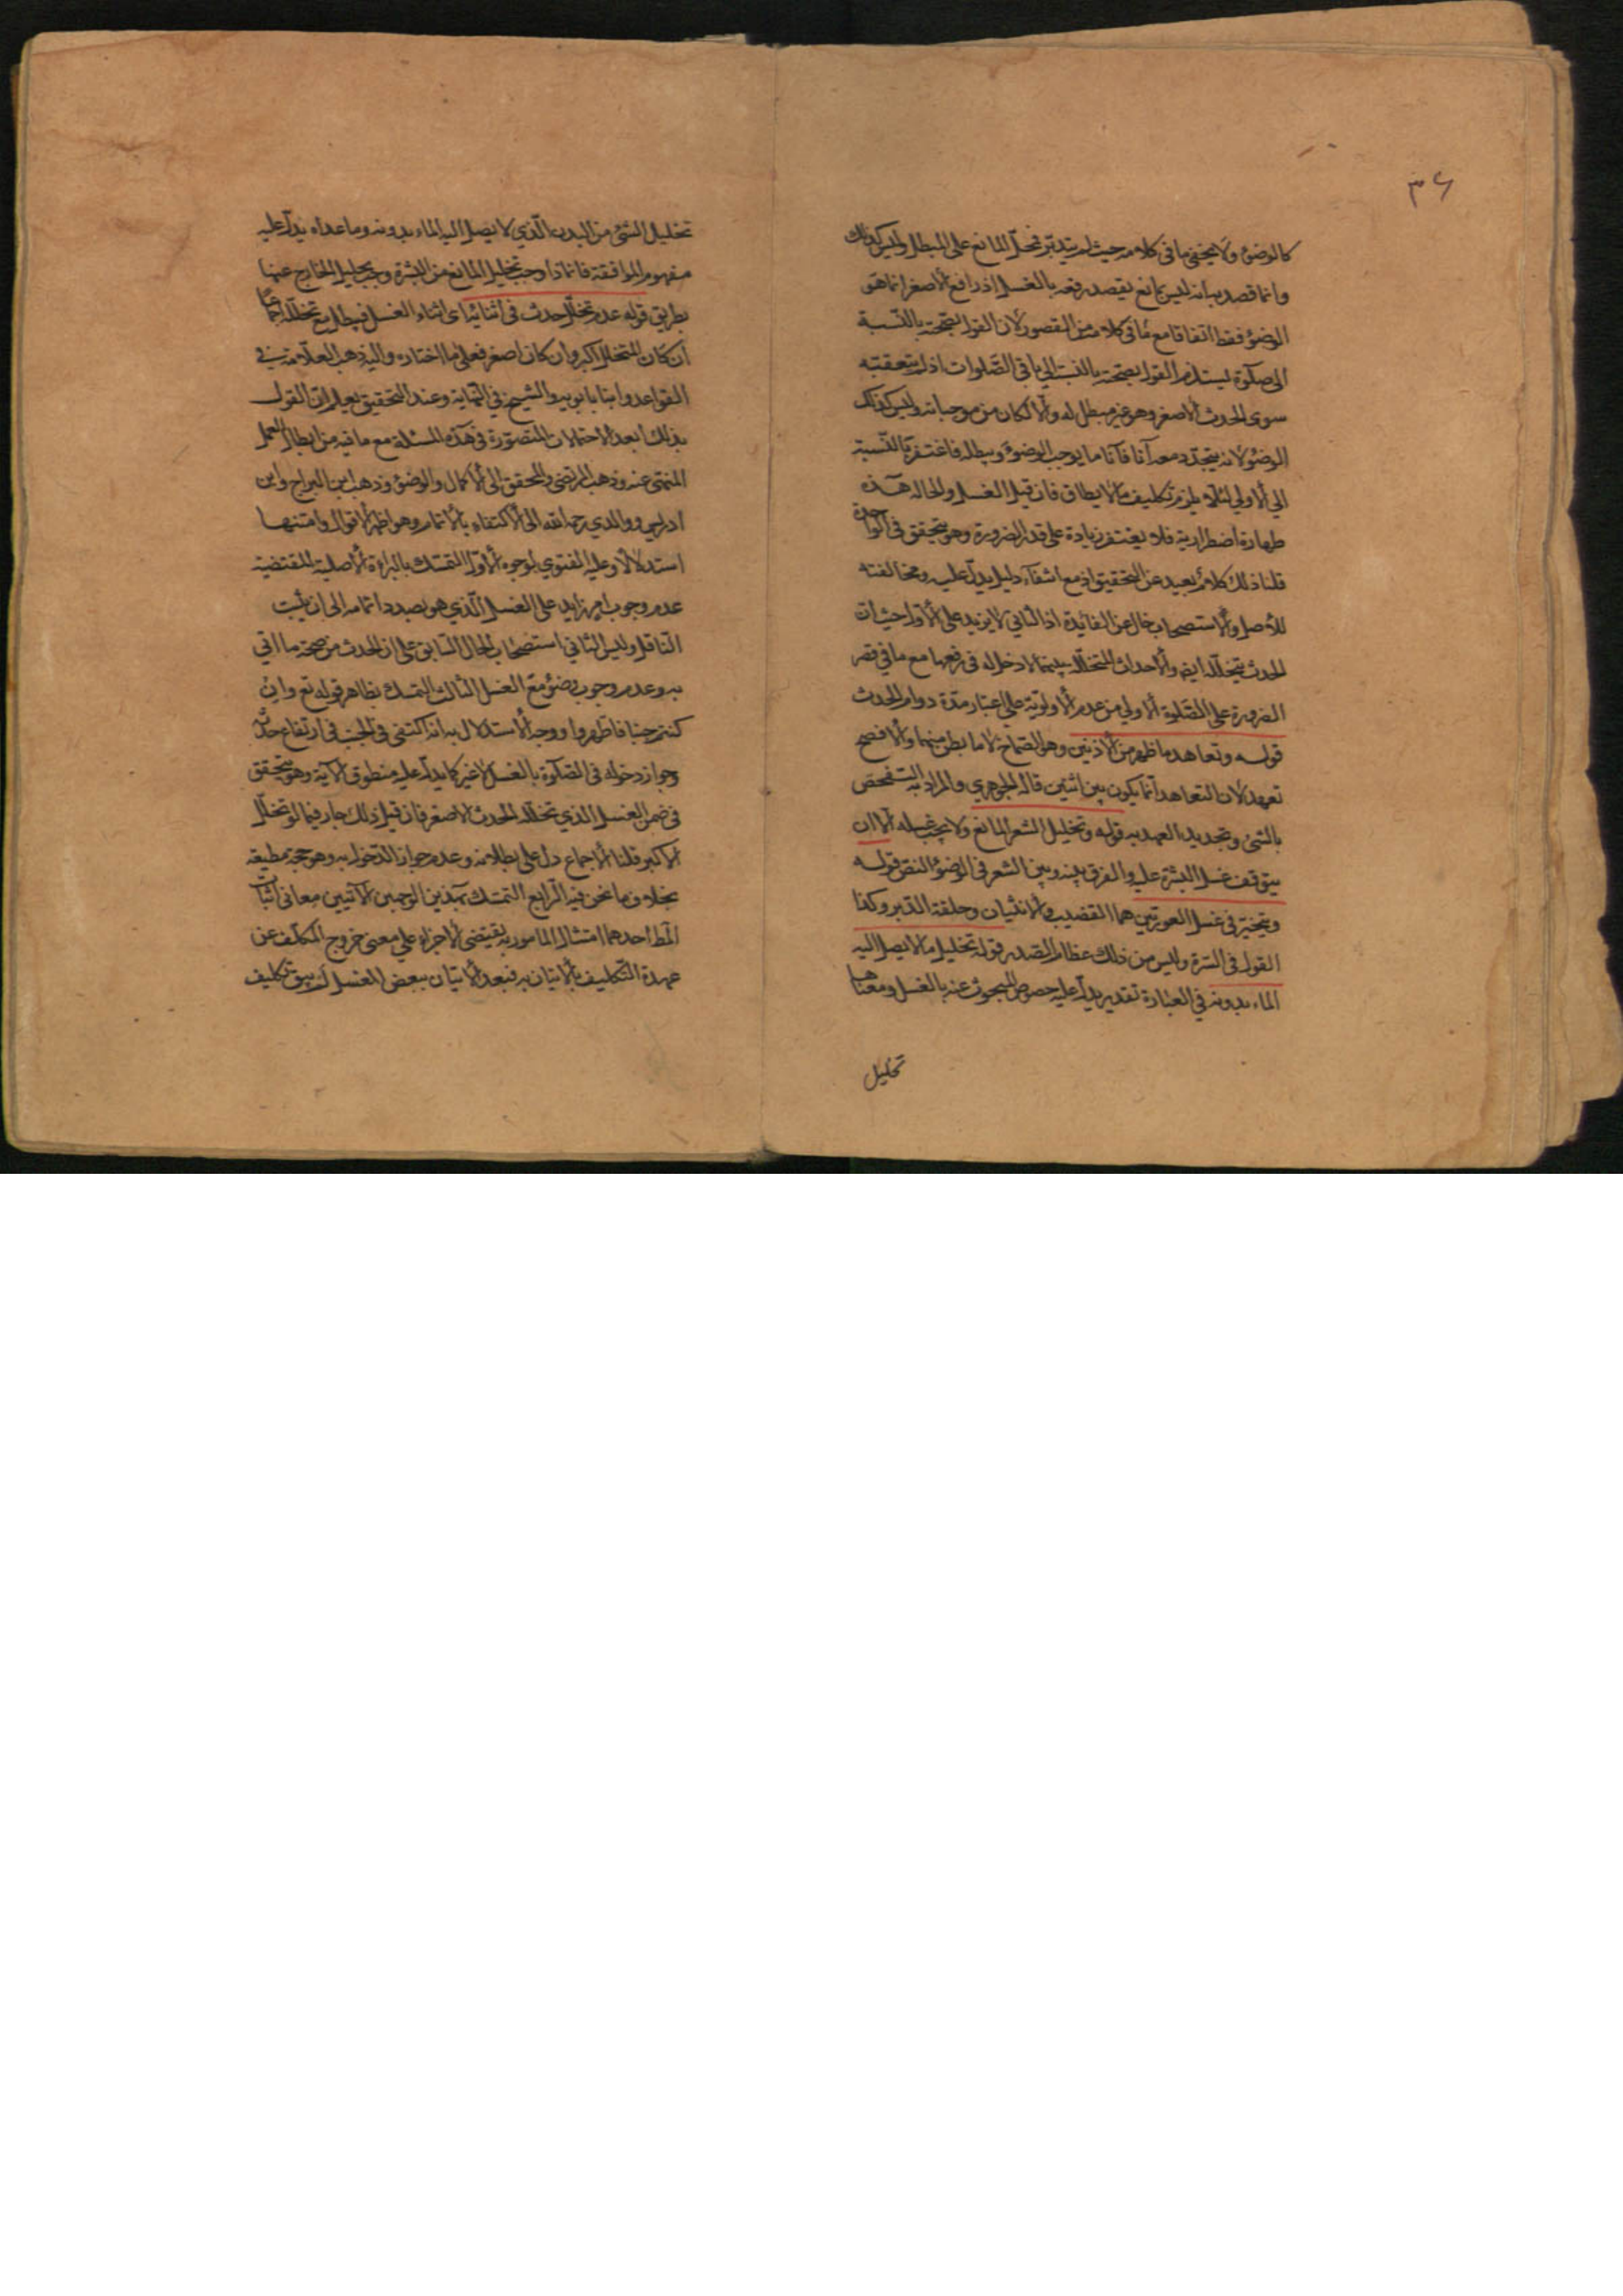 ٣٦
كالوضوء ولا يخفى ما في كلامه حيث لم يتدبر فحمل المانع على المبطل وليس كذلك
وانما قصد به انه ليس بمانع يقصد رفعه بالغسل اذ رافع الاصغر انما هو
الوضوء فقط اتفاقا مع ما في كلامه من القصور لان القول بصحته بالنسبة
الى صلوة يستلزم القول بصحته بالنسبة الى باقي الصلوات اذ لم يتعقبه
سوى الحدث الاصغر وهو غير مبطل له والا لكان من موجباته وليس كذلك
الوضوء لانه يتجدد معه آنا فآنا ما يوجب الوضوء ويبطله فاغتفر بالنسبة
الى الاولى لئلا يلزم تكليف ما لا يطاق فان قيل الغسل والحالة هذه
طهارة اضطرارية فلا يغتفر زيادة على قدر الضرورة وهو يتحقق في الواحدة
قلنا ذلك كلام بعيد عن التحقيق اذ مع انتفاء دليل يدل عليه ومخالفته
للأصل والاستصحاب خال عن الفائدة اذ الثاني لا يزيد على الاول حيث ان
الحدث يتخلله ايض والاحداث المتخللة بينهما لا دخل له في رفعها مع ما في قصر
الضرورة على الصلوة الاولى من عدم الاولوية على اعتبار مدة دوام الحدث
قوله وتعاهد ما ظهر من الاذنين وهو الصماخ لا ما بطن منهما والافصح
تعهد لان التعاهد انما يكون بين اثنين قاله الجوهري والمراد به التفحص
بالشئ وتجديد العهد به قوله وتخليل الشعر المانع ولا يجب غسله الا ان
يتوقف غسل البشرة عليه والفرق بينه وبين الشعر في الوضوء النص قوله
ويتخير في غسل العورتين هما القضيب والانثيان وحلقة الدبر وكذا
القول في السرة وليس من ذلك عظام الصدر قوله تخليل ما لا يصل اليه
الماء بدونه في العبارة تقدير يدل عليه خصوص المبحوث عنه بالغسل ومعناها
تخليل
تخليل الشئ من البدن الذي لا يصل اليه الماء بدونه وما عداه يدل عليه
مفهوم الموافقة فانه اذا وجب تخليل المانع من البشرة وجب تخليل الخارج عنها
بطريق قوله عدم تخلل حدث في اثنائه اى اثناء الغسل فيبطل مع تخلله اجماعا
ان كان المتخلل اكبر وان كان اصغر فعلى ما اختاره واليه ذهب العلامة في
القواعد وابنا بابويه والشيخ في النهاية وعند التحقيق يعلم ان القول
بذلك ابعد الاحتمالات المتصورة في هذه المسئلة مع ما فيه من ابطال العمل
المنهى عنه وذهب المرتضى والمحقق الى الاكمال والوضوء وذهب ابن البراج وابن
ادريس ووالدي رحمه الله الى الاكتفاء بالاتمام وهو اظهر الاقوال وامتنها
استدلالا وعليه الفتوى لوجوه الاول التمسك بالبراءة الاصلية المقتضية
عدم وجوب امر زايد على الغسل الذي هو بصدد اتمامه الى ان يثبت
الناقل وليس الثاني استصحاب الحال السابق على ان الحدث من صحة ما اتى
به وعدم وجوب وضوء مع الغسل الثالث التمسك بظاهر قوله تع وان
كنتم جنبا فاطهروا ووجه الاستدلال به انه اكتفى في الجنب في ارتفاع حدثه
وجواز دخوله في الصلوة بالغسل لا غير كما يدل عليه منطوق الآية وهو يتحقق
في ضمن الغسل الذي تخلله الحدث الاصغر فان قيل ذلك جار فيما لو تخلل
الاكبر قلنا الاجماع دل على بطلانه وعدم جواز الدخول به وهو حجة
بخلاف ما نحن فيه الرابع التمسك بهذين الوجهين الآتيين معا في اثبات
المط احدهما امتثال المامور به يقتضى الاجزاء على معنى خروج المكلف عن
عهدة التكليف بالاتيان به فبعد الاتيان ببعض الغسل لم يبق تكليف